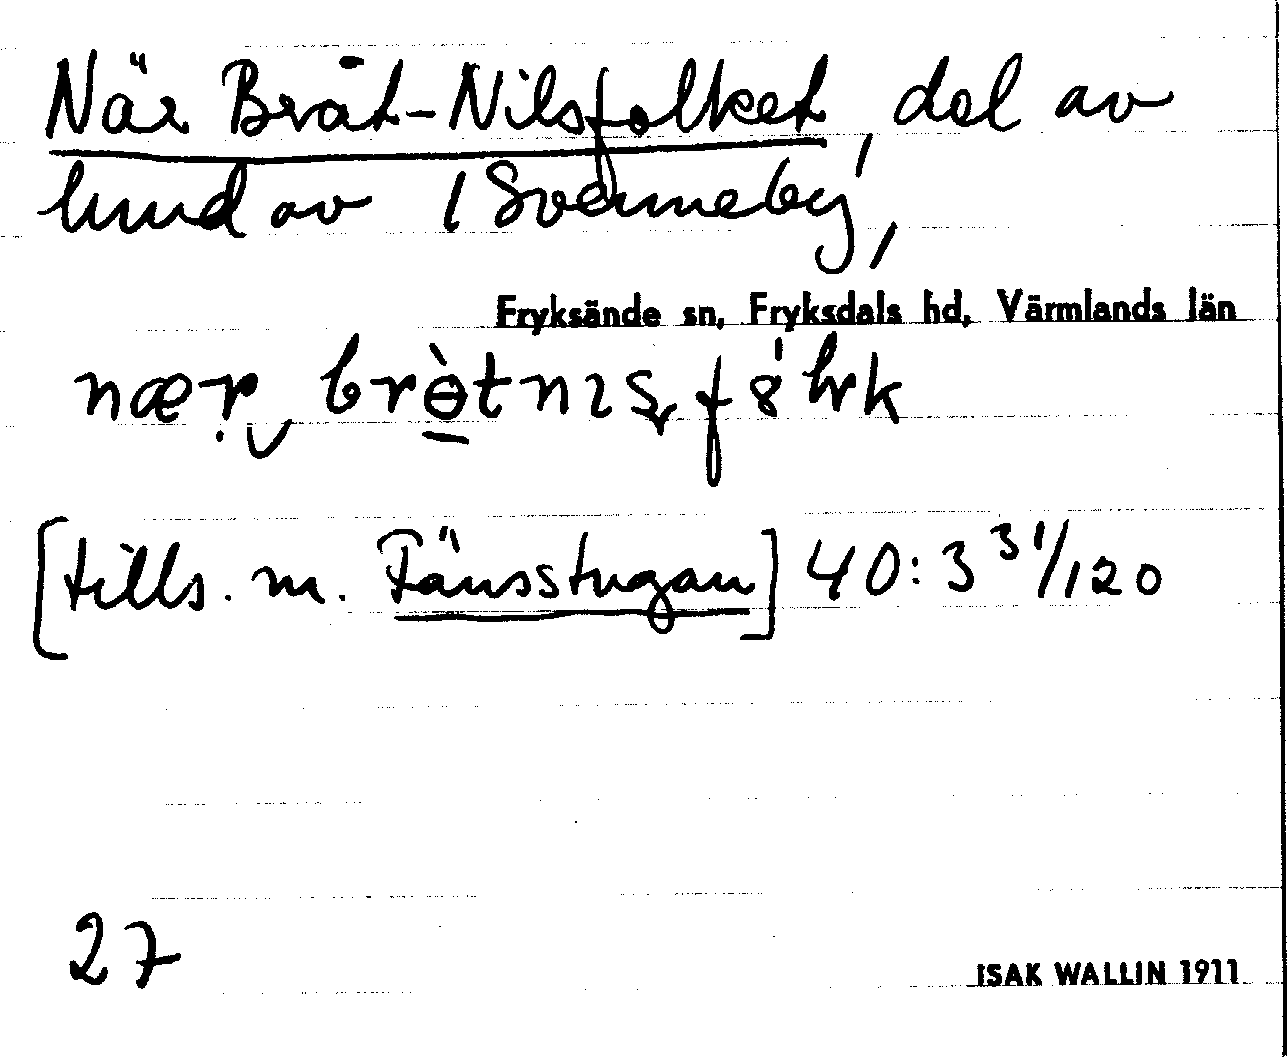 När Bråt-Nilsfolket, del av
hmd av 1 Svenneby,
Fryksände sn, Fryksdals hd, Värmlands län
nær
[tills. m. Fänsstugan] 40:3 31/120
27
ISAK WALLIN 1911